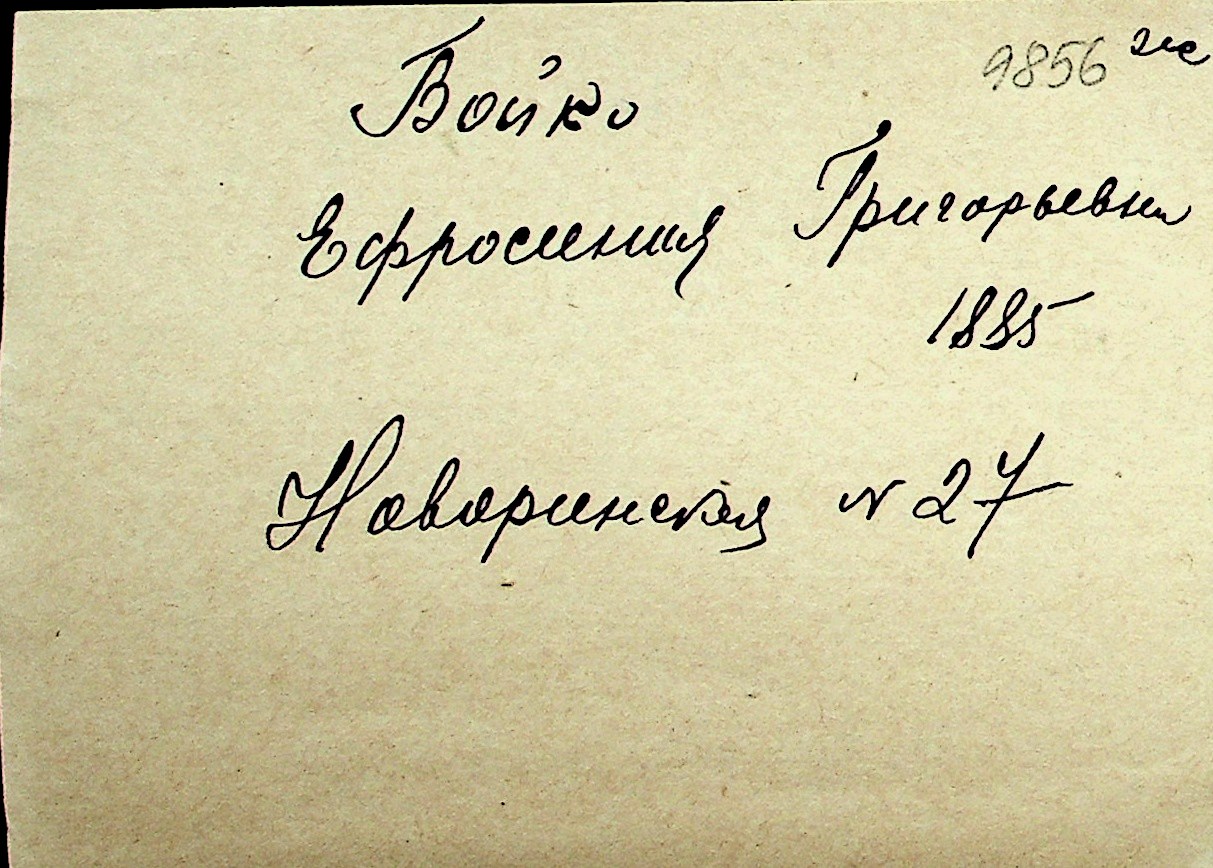 9856 же
Бойко
Ефросиния Григорьевна
1885
Новоринская № 27